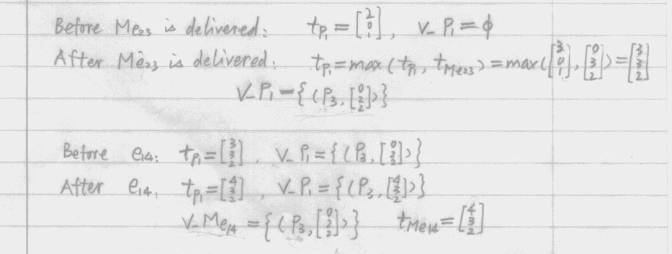 Before Me₂₃ is delivered: t_P₁ = [2 0 1], V_P₁ = ϕ
After Me₂₃ is delivered: t_P₁ = max(t_P₁, t_Me₂₃) = max([3 0 1], [0 3 2]) = [3 3 2]
V_P₁ = {(P₃, [0 2 2])}
Before e₁₄: t_P₁ = [3 3 2], V_P₁ = {(P₃, [0 2 2])}
After e₁₄, t_P₁ = [4 3 2], V_P₁ = {(P₃, [4 3 2])}
V_Me₁₄ = {(P₃, [0 2 2])} t_Me₁₄ = [4 3 2]